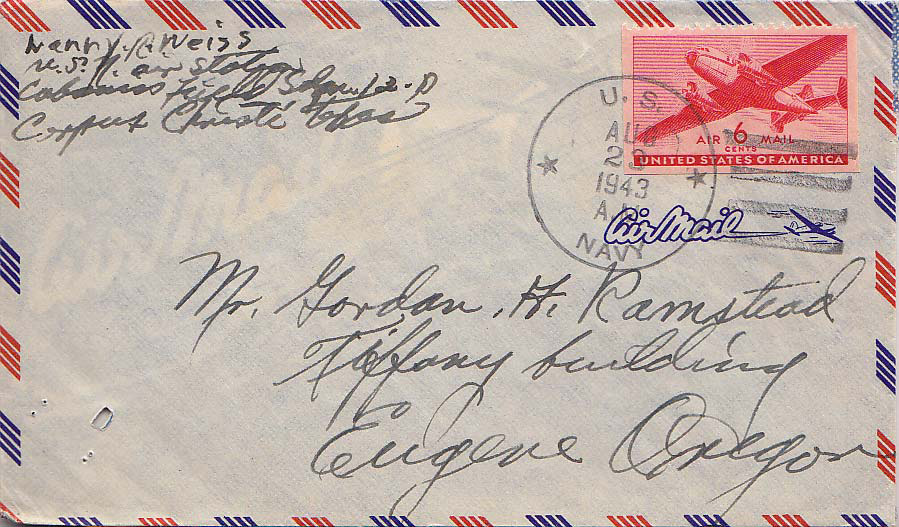 Weiss
U.S.N. air station
Cabaniss Field Sdqn. 12-D
Corpus Christi Texas
U. S.
AUG
23
1943
A.M.
NAVY
AIR 6 MAIL
CENTS
UNITED STATES OF AMERICA
Air Mail
Mr. Gordon. H. Ramstead
Tiffany building
Eugene Oregon